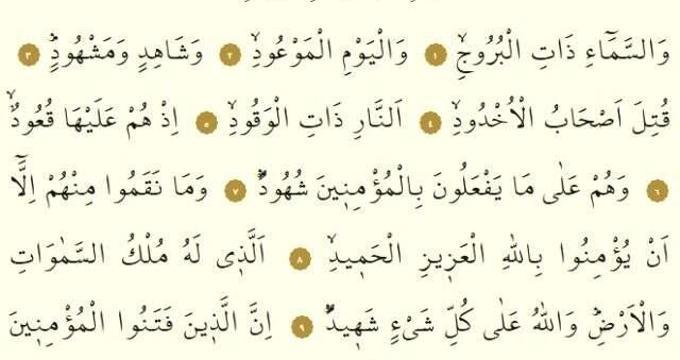 وَالسَّمَٓاءِ ذَاتِ الْبُرُوجِۙ ١ وَالْيَوْمِ الْمَوْعُودِۙ ٢ وَشَاهِدٍ وَمَشْهُودٍۜ ٣
قُتِلَ اَصْحَابُ الْاُخْدُودِۙ ٤ اَلنَّارِ ذَاتِ الْوَقُودِۙ ٥ اِذْ هُمْ عَلَيْهَا قُعُودٌۙ
٦ وَهُمْ عَلٰى مَا يَفْعَلُونَ بِالْمُؤْمِنٖينَ شُهُودٌۜ ٧ وَمَا نَقَمُوا مِنْهُمْ اِلَّٓا
اَنْ يُؤْمِنُوا بِاللّٰهِ الْعَزٖيزِ الْحَمٖيدِۙ ٨ اَلَّذٖى لَهُ مُلْكُ السَّمٰوَاتِ
وَالْاَرْضِۜ وَاللّٰهُ عَلٰى كُلِّ شَىْءٍ شَهٖيدٌۜ ٩ اِنَّ الَّذٖينَ فَتَنُوا الْمُؤْمِنٖينَ